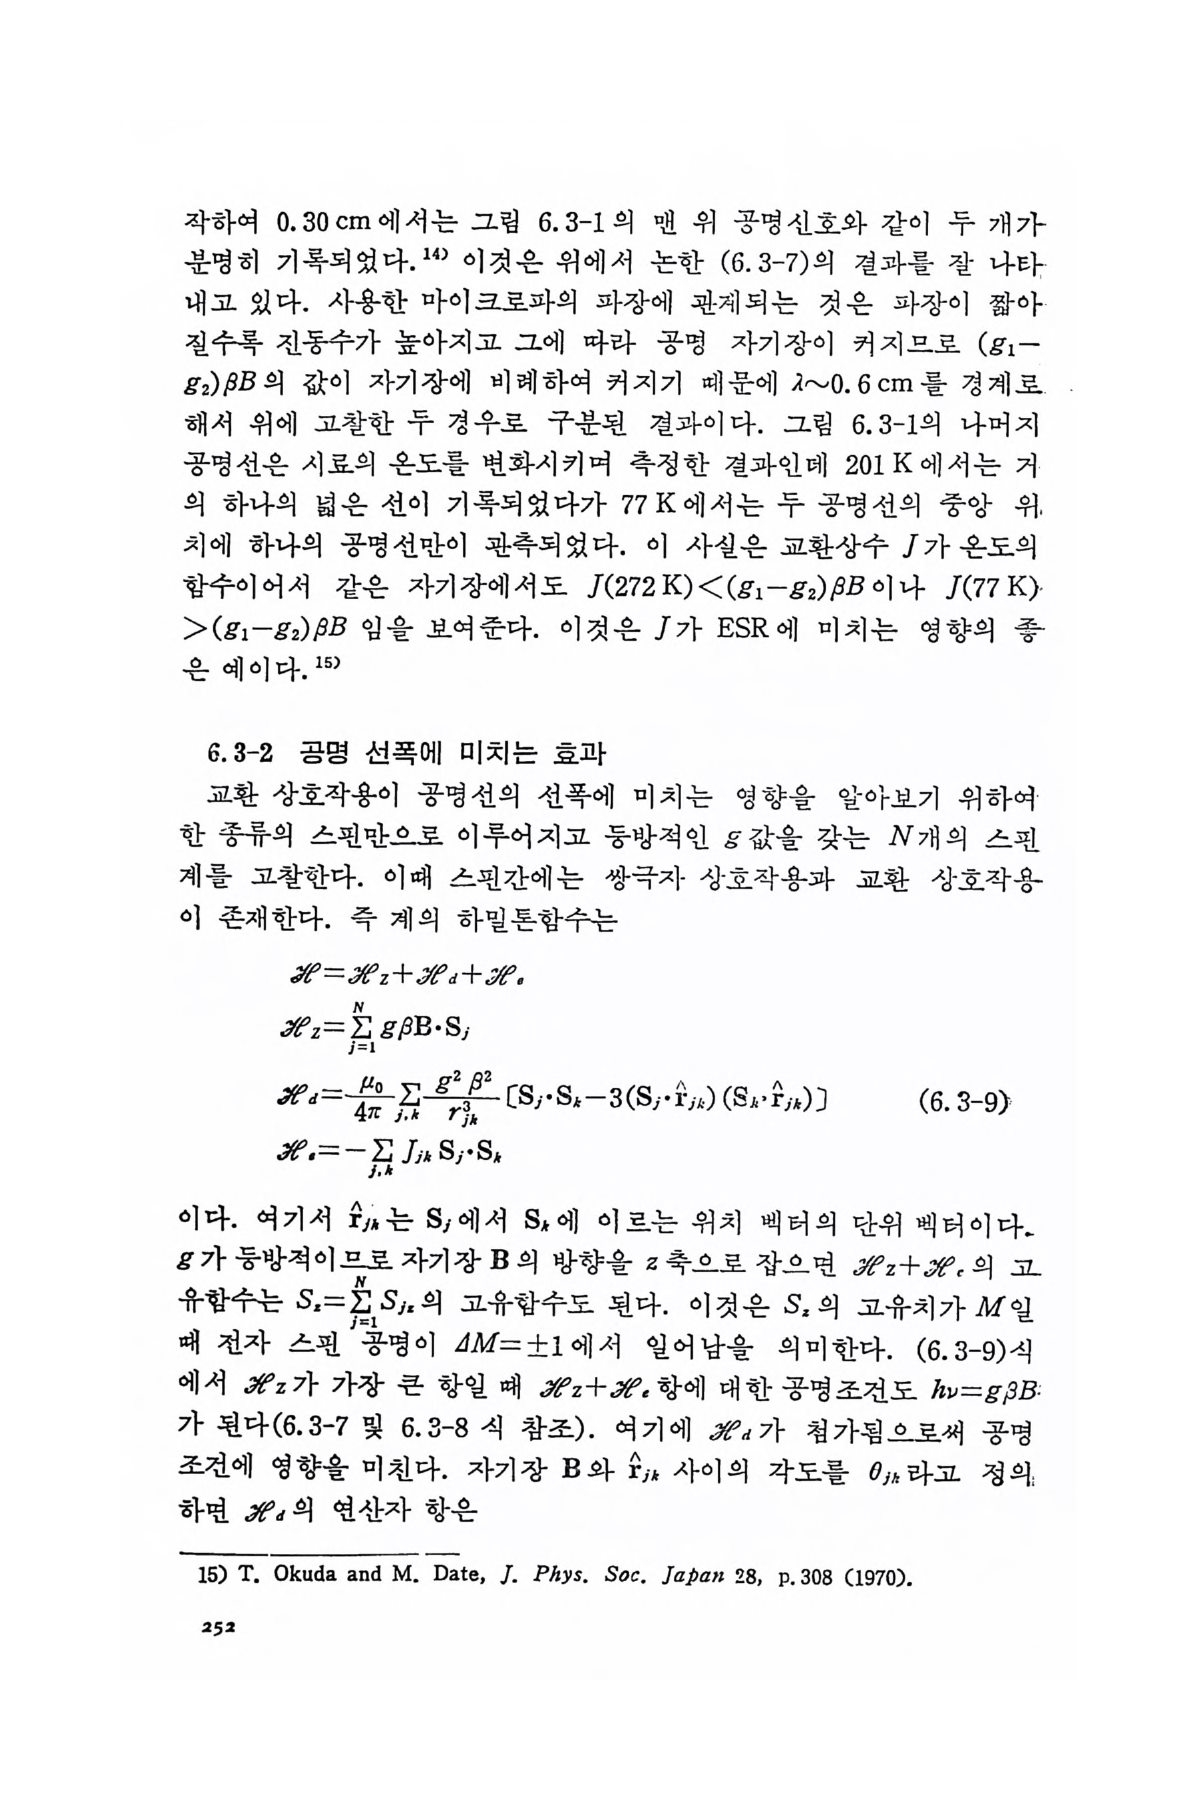 작하여 0.30 cm에서는 그림 6.3-1의 맨 위 공명신호와 같이 두 개가
분명히 기록되었다.¹⁴⁾ 이것은 위에서 논한 (6.3-7)의 결과를 잘 나타
내고 있다. 사용한 마이크로파의 파장에 관계되는 것은 파장이 짧아
질수록 진동수가 높아지고 그에 따라 공명 자기장이 커지므로 (g₁—
g₂)βB의 값이 자기장에 비례하여 커지기 때문에 λ~0.6 cm를 경계로
해서 위에 고찰한 두 경우로 구분된 결과이다. 그림 6.3-1의 나머지
공명선은 시료의 온도를 변화시키며 측정한 결과인데 201 K에서는 거
의 하나의 넓은 선이 기록되었다가 77 K에서는 두 공명선의 중앙 위
치에 하나의 공명선만이 관측되었다. 이 사실은 교환상수 J가 온도의
함수이어서 같은 자기장에서도 J(272 K)<(g₁—g₂)βB이나 J(77 K)
>(g₁—g₂)βB 임을 보여준다. 이것은 J가 ESR에 미치는 영향의 좋
은 예이다.¹⁵⁾
6.3-2 공명 선폭에 미치는 효과
교환 상호작용이 공명선의 선폭에 미치는 영향을 알아보기 위하여
한 종류의 스핀만으로 이루어지고 등방적인 g값을 갖는 N개의 스핀
계를 고찰한다. 이때 스핀간에는 쌍극자 상호작용과 교환 상호작용
이 존재한다. 즉 계의 하밀톤함수는
ℋ=ℋ_z+ℋ_d+ℋ_e
ℋ_z=∑_{j=1}^{N} gβB·S_j
ℋ_d=μ₀/4π ∑_{j,k} g²β²/r³_{jk} [S_j·S_k—3(S_j·r̂_{jk})(S_k·r̂_{jk})] (6.3-9)
ℋ_e=—∑_{j,k} J_{jk} S_j·S_k
이다. 여기서 r̂_{jk}는 S_j에서 S_k에 이르는 위치 벡터의 단위 벡터이다.
g가 등방적이므로 자기장 B의 방향을 z축으로 잡으면 ℋ_z+ℋ_e의 고
유함수는 S_z=∑_{j=1}^{N} S_{jz}의 고유함수도 된다. 이것은 S_z의 고유치가 M일
때 전자 스핀 공명이 ΔM=±1에서 일어남을 의미한다. (6.3-9)식
에서 ℋ_z가 가장 큰 항일 때 ℋ_z+ℋ_e항에 대한 공명조건도 hν=gβB
가 된다(6.3-7 및 6.3-8 식 참조). 여기에 ℋ_d가 첨가됨으로써 공명
조건에 영향을 미친다. 자기장 B와 r̂_{jk} 사이의 각도를 θ_{jk}라고 정의
하면 ℋ_d의 연산자 항은
15) T. Okuda and M. Date, J. Phys. Soc. Japan 28, p.308 (1970).
252